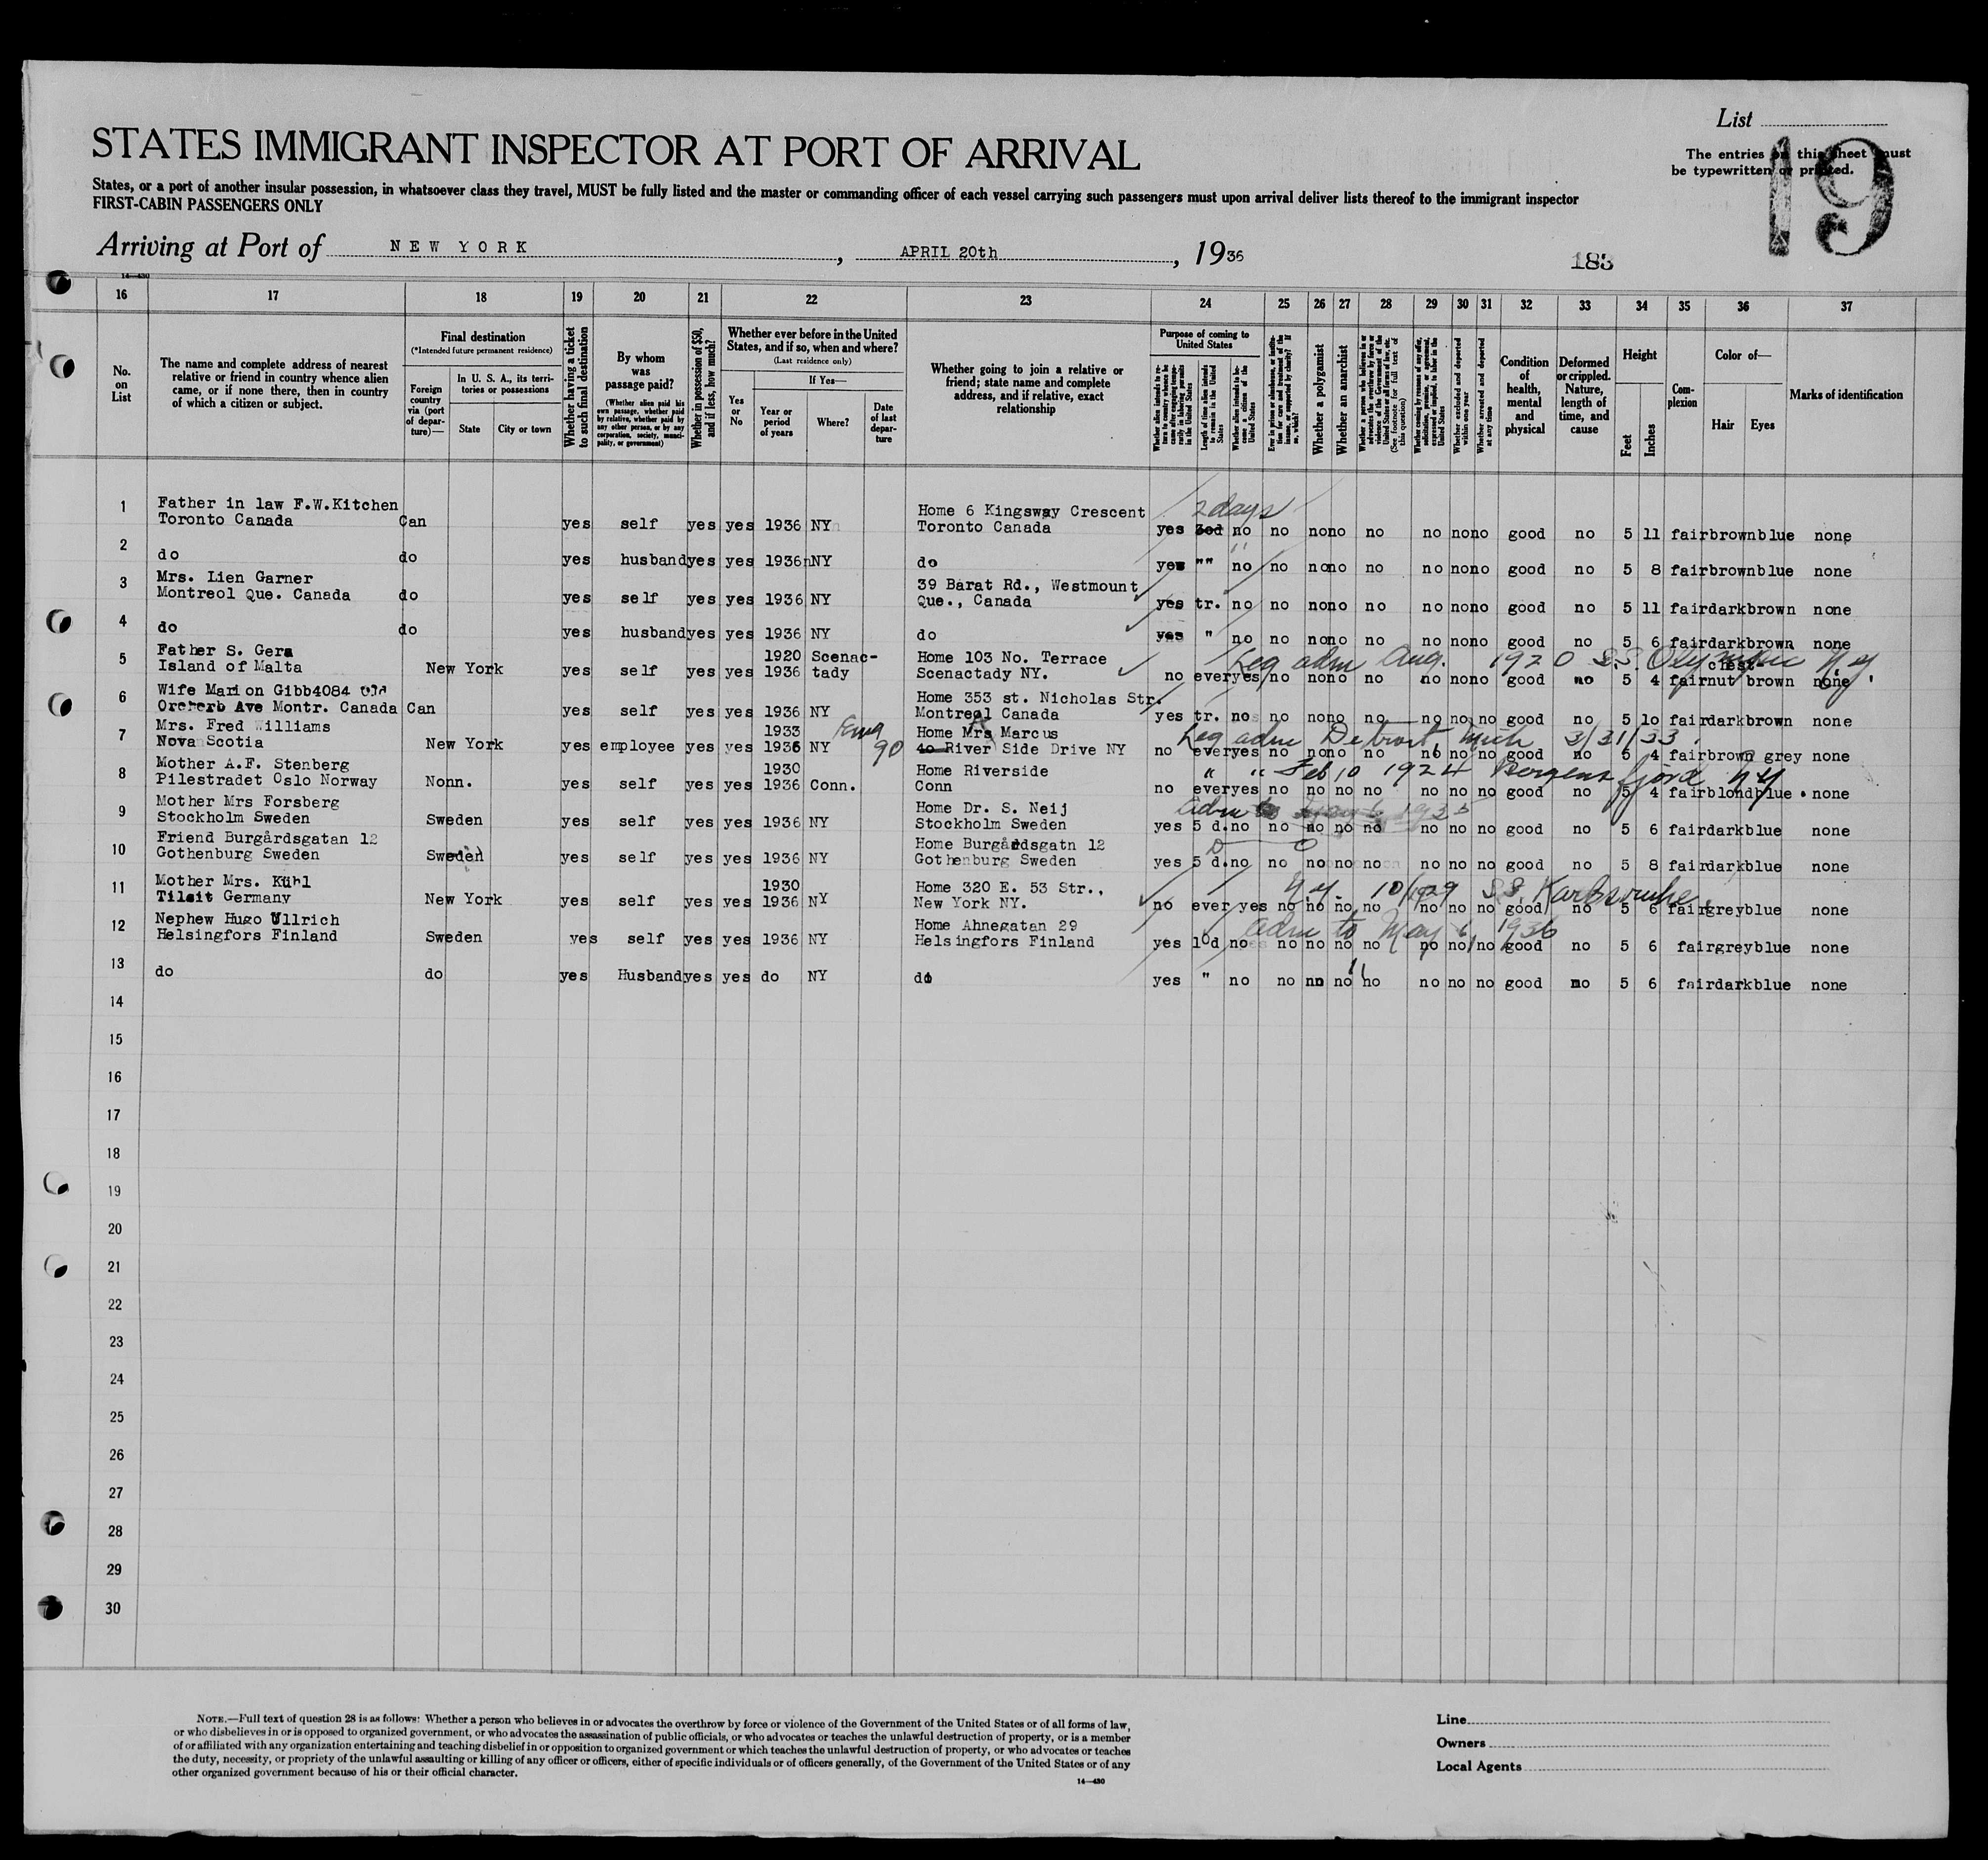 List
19
The entries on this sheet must
be typewritten or printed.
STATES IMMIGRANT INSPECTOR AT PORT OF ARRIVAL
States, or a port of another insular possession, in whatsoever class they travel, MUST be fully listed and the master or commanding officer of each vessel carrying such passengers must upon arrival deliver lists thereof to the immigrant inspector
FIRST-CABIN PASSENGERS ONLY
Arriving at Port of NEW YORK, APRIL 20th, 1936
183
14—430
16 17 18 19 20 21 22 23 24 25 26 27 28 29 30 31 32 33 34 35 36 37
No. on List
The name and complete address of nearest
relative or friend in country whence alien
came, or if none there, then in country
of which a citizen or subject.
Final destination
(*Intended future permanent residence)
Foreign country via (port of departure)—
In U. S. A., its territories or possessions
State
City or town
Whether having a ticket to such final destination
By whom was passage paid?
(Whether alien paid his own passage, whether paid by relative, whether paid by any other person, or by any corporation, society, municipality, or government)
Whether in possession of $50, and if less, how much?
Whether ever before in the United
States, and if so, when and where?
(Last residence only)
Yes or No
If Yes—
Year or period of years
Where?
Date of last departure
Whether going to join a relative or
friend; state name and complete
address, and if relative, exact
relationship
Purpose of coming to United States
Length of time alien intends to remain in the United States
Whether alien intends to become a citizen of the United States
Whether a polygamist
Whether an anarchist
(See footnote for full text of this question)
Whether excluded and deported within one year
Whether arrested and deported at any time
Condition of health, mental and physical
Deformed or crippled. Nature, length of time, and cause
Height
Feet
Inches
Complexion
Color of—
Hair
Eyes
Marks of identification
2 days
1 Father in law F.W.Kitchen Home 6 Kingsway Crescent
Toronto Canada Can yes self yes yes 1936 NY Toronto Canada yes 30d no no no no no no no no good no 5 11 fair brown blue none
2 do do yes husband yes yes 1936 NY do yes "" no no no no no no no no good no 5 8 fair brown blue none
3 Mrs. Lien Garner 39 Barat Rd., Westmount
Montreol Que. Canada do yes self yes yes 1936 NY Que., Canada yes tr. no no no no no no no no good no 5 11 fair dark brown none
4 do do yes husband yes yes 1936 NY do yes " no no no no no no no no good no 5 6 fair dark brown none
5 Father S. Gera 1920 Scenac- Home 103 No. Terrace Leg adm Aug. 1920 S.S. Olympic N.Y.
Island of Malta New York yes self yes yes 1936 tady Scenactady NY. no ever yes no no no no no no no good no 5 4 fair chest-nut brown none
6 Wife Marion Gibb4084 Old Home 353 st. Nicholas Str.
Orcherb Ave Montr. Canada Can yes self yes yes 1936 NY Montreal Canada yes tr. no no no no no no no no good no 5 10 fair dark brown none
7 Mrs. Fred Williams 1933 Home Mrs Marcus Leg adm Detroit Mich 3/31/33.
Nova Scotia New York yes employee yes yes 1936 NY 90 40 River Side Drive NY no ever yes no no no no no no no good no 5 4 fair brown grey none
8 Mother A.F. Stenberg 1930 Home Riverside " " Feb 10 1924 Bergensfjord NY
Pilestradet Oslo Norway Nonn. yes self yes yes 1936 Conn. Conn no ever yes no no no no no no no good no 5 4 fair blond blue none
9 Mother Mrs Forsberg Home Dr. S. Neij adm
Stockholm Sweden Sweden yes self yes yes 1936 NY Stockholm Sweden yes 5 d. no no no no no no no no good no 5 6 fair dark blue none
10 Friend Burgårdsgatan 12 Home Burgårdsgatn 12
Gothenburg Sweden Sweden yes self yes yes 1936 NY Gothenburg Sweden yes 5 d. no no no no no no no no good no 5 8 fair dark blue none
11 Mother Mrs. Kühl 1930 Home 320 E. 53 Str., N.Y. 10/1929 S.S. Karlsruhe.
Tilsit Germany New York yes self yes yes 1936 NY New York NY. no ever yes no no no no no no no good no 5 6 fair grey blue none
12 Nephew Hugo Ullrich Home Ahnegatan 29 adm to May 6, 1936
Helsingfors Finland Sweden yes self yes yes 1936 NY Helsingfors Finland yes 10d no no no no no no no no good no 5 6 fair grey blue none
13 do do yes Husband yes yes do NY do yes " no no no no no no no no good no 5 6 fair dark blue none
14
15
16
17
18
19
20
21
22
23
24
25
26
27
28
29
30
NOTE.—Full text of question 28 is as follows: Whether a person who believes in or advocates the overthrow by force or violence of the Government of the United States or of all forms of law,
or who disbelieves in or is opposed to organized government, or who advocates the assassination of public officials, or who advocates or teaches the unlawful destruction of property, or is a member
of or affiliated with any organization entertaining and teaching disbelief in or opposition to organized government or which teaches the unlawful destruction of property, or who advocates or teaches
the duty, necessity, or propriety of the unlawful assaulting or killing of any officer or officers, either of specific individuals or of officers generally, of the Government of the United States or of any
other organized government because of his or their official character.
14—430
Line
Owners
Local Agents